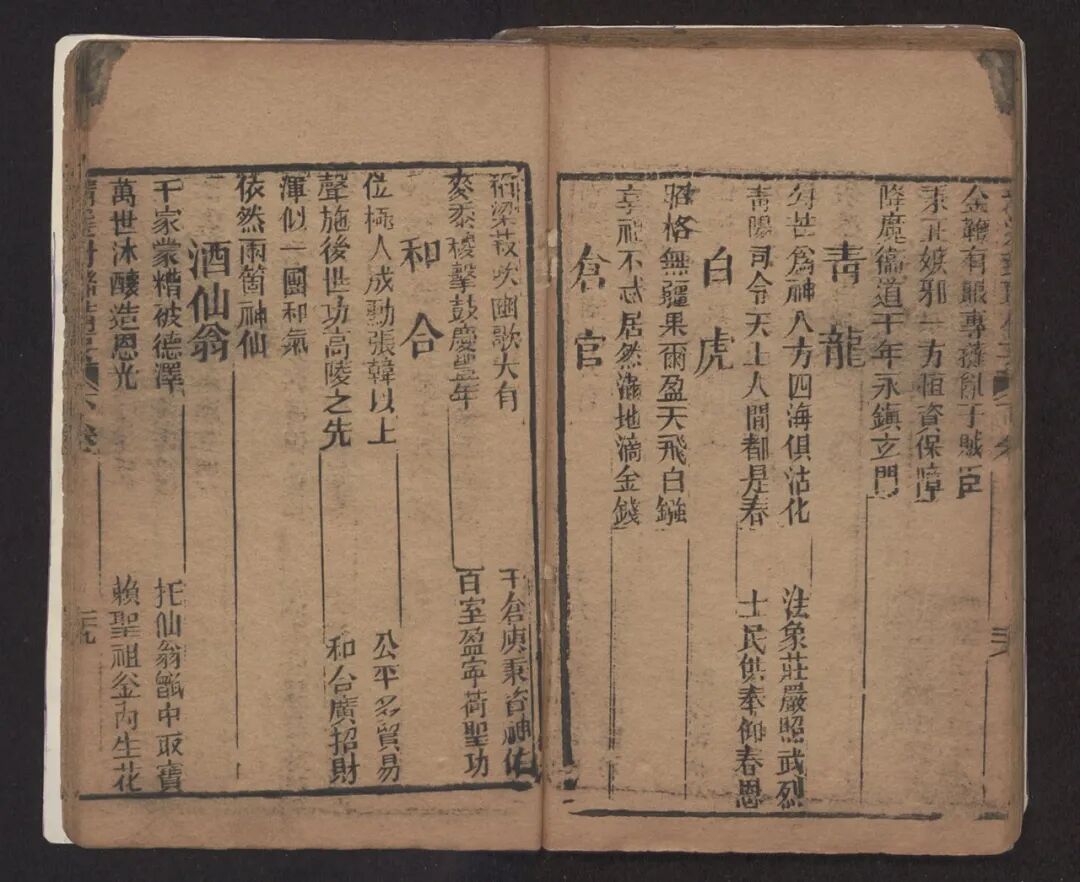 金鞭有眼專撻亂子賊臣
秉正嫉邪一方恒資保障
降魔衛道千年永鎮玄門
青龍
勾芒為神八方四海俱沾化
法象莊嚴照武烈
青陽司令天上人間都是春
士民供奉仰春恩
白虎
昭格無疆果爾盈天飛白鏹
享祀不忒居然滿地滴金錢
倉官
稻粱菽吹豳歌大有
千倉庾秉咨神佑
麥黍稷擊鼓慶豐年
百室盈寧荷聖功
和合
位極人成勳張韓以上
公平多貿易
聲施後世功高陵之先
和合廣招財
渾似一團和氣
依然兩箇神仙
酒仙翁
千家蒙糟被德澤
托仙翁甑中取寶
萬世沐釀造恩光
賴聖祖釜內生花
六卷
三九